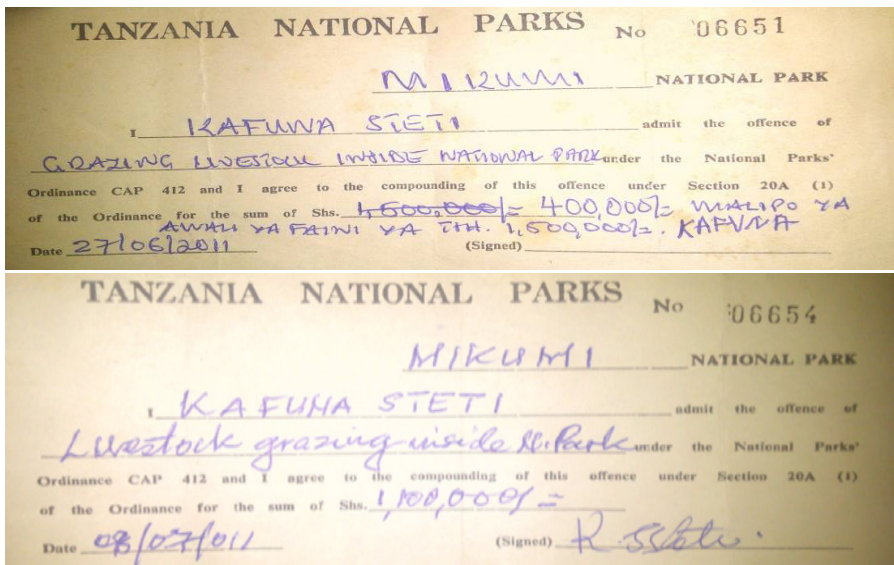 TANZANIA NATIONAL PARKS No 06651
MIKUMI NATIONAL PARK
I KAFUNA STETI admit the offence of
GRAZING LIVESTOCK INSIDE NATIONAL PARK under the National Parks'
Ordinance CAP 412 and I agree to the compounding of this offence under Section 20A (1)
of the Ordinance for the sum of Shs. 1,500,000/= 400,000/= MALIPO YA
AWALI YA FAINI YA TSH. 1,500,000/=. KAFUNA
Date 27/06/2011 (Signed)
TANZANIA NATIONAL PARKS No 06654
MIKUMI NATIONAL PARK
I KAFUNA STETI admit the offence of
Livestock grazing inside N. Park under the National Parks'
Ordinance CAP 412 and I agree to the compounding of this offence under Section 20A (1)
of the Ordinance for the sum of Shs. 1,100,000/=
Date 08/07/011 (Signed)